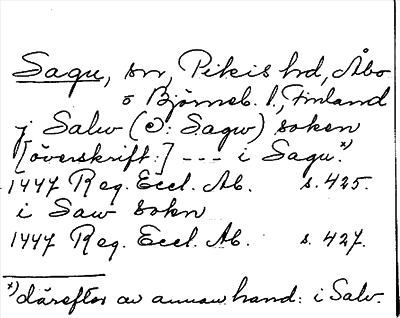 Sagu, sn, Pikis hd, Åbo
o Björneb. l., Finland
j Salw (ɔ: Sagw) soken
[överskrift:] --- i Sagu.*)
1447 Reg. Eccl. Ab. s. 425.
i Saw sokn
1447 Reg. Eccl. Ab. s. 427.
*) därefter av annan hand: i Salv.